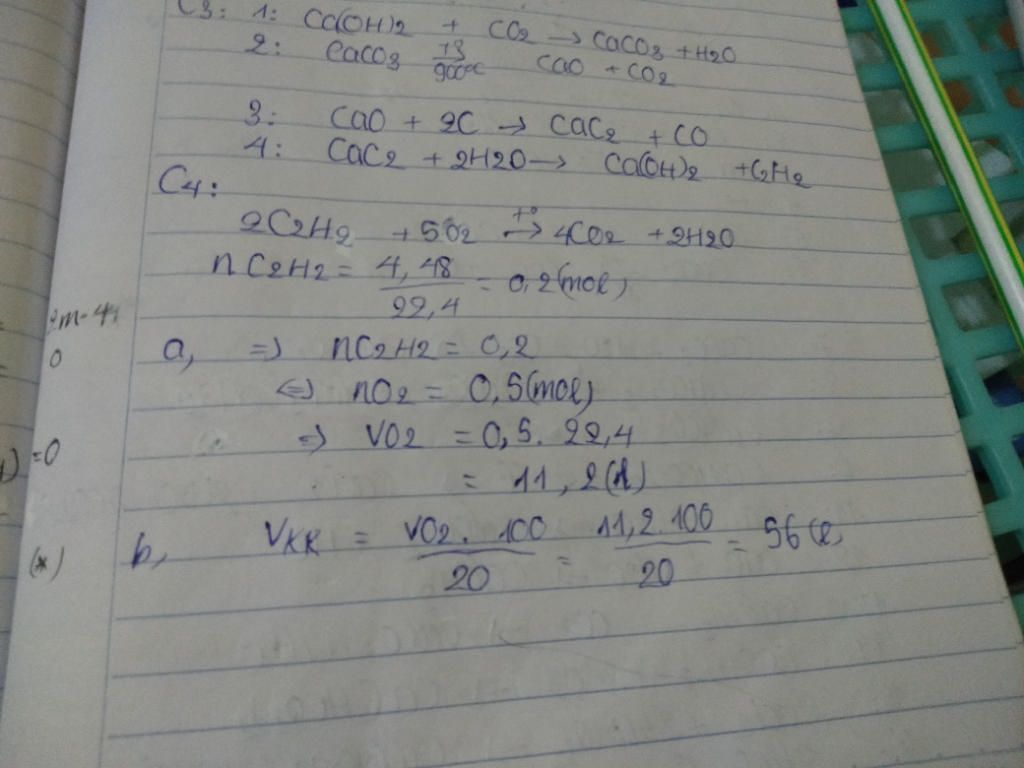 C3: 1: Ca(OH)2 + CO2 → CaCO3 + H2O
2: CaCO3 900°C CaO + CO2
3: CaO + 2C → CaC2 + CO
4: CaC2 + 2H2O → Ca(OH)2 + C2H2
C4:
2C2H2 + 5O2 t° → 4CO2 + 2H2O
nC2H2 = 4,48 / 22,4 = 0,2 (mol)
2m-4
0
a, => nC2H2 = 0,2
<=> nO2 = 0,5 (mol)
=> VO2 = 0,5. 22,4
) =0
= 11,2 (l)
(*)
b, VKK = VO2. 100 / 20 = 11,2. 100 / 20 = 56 (l)